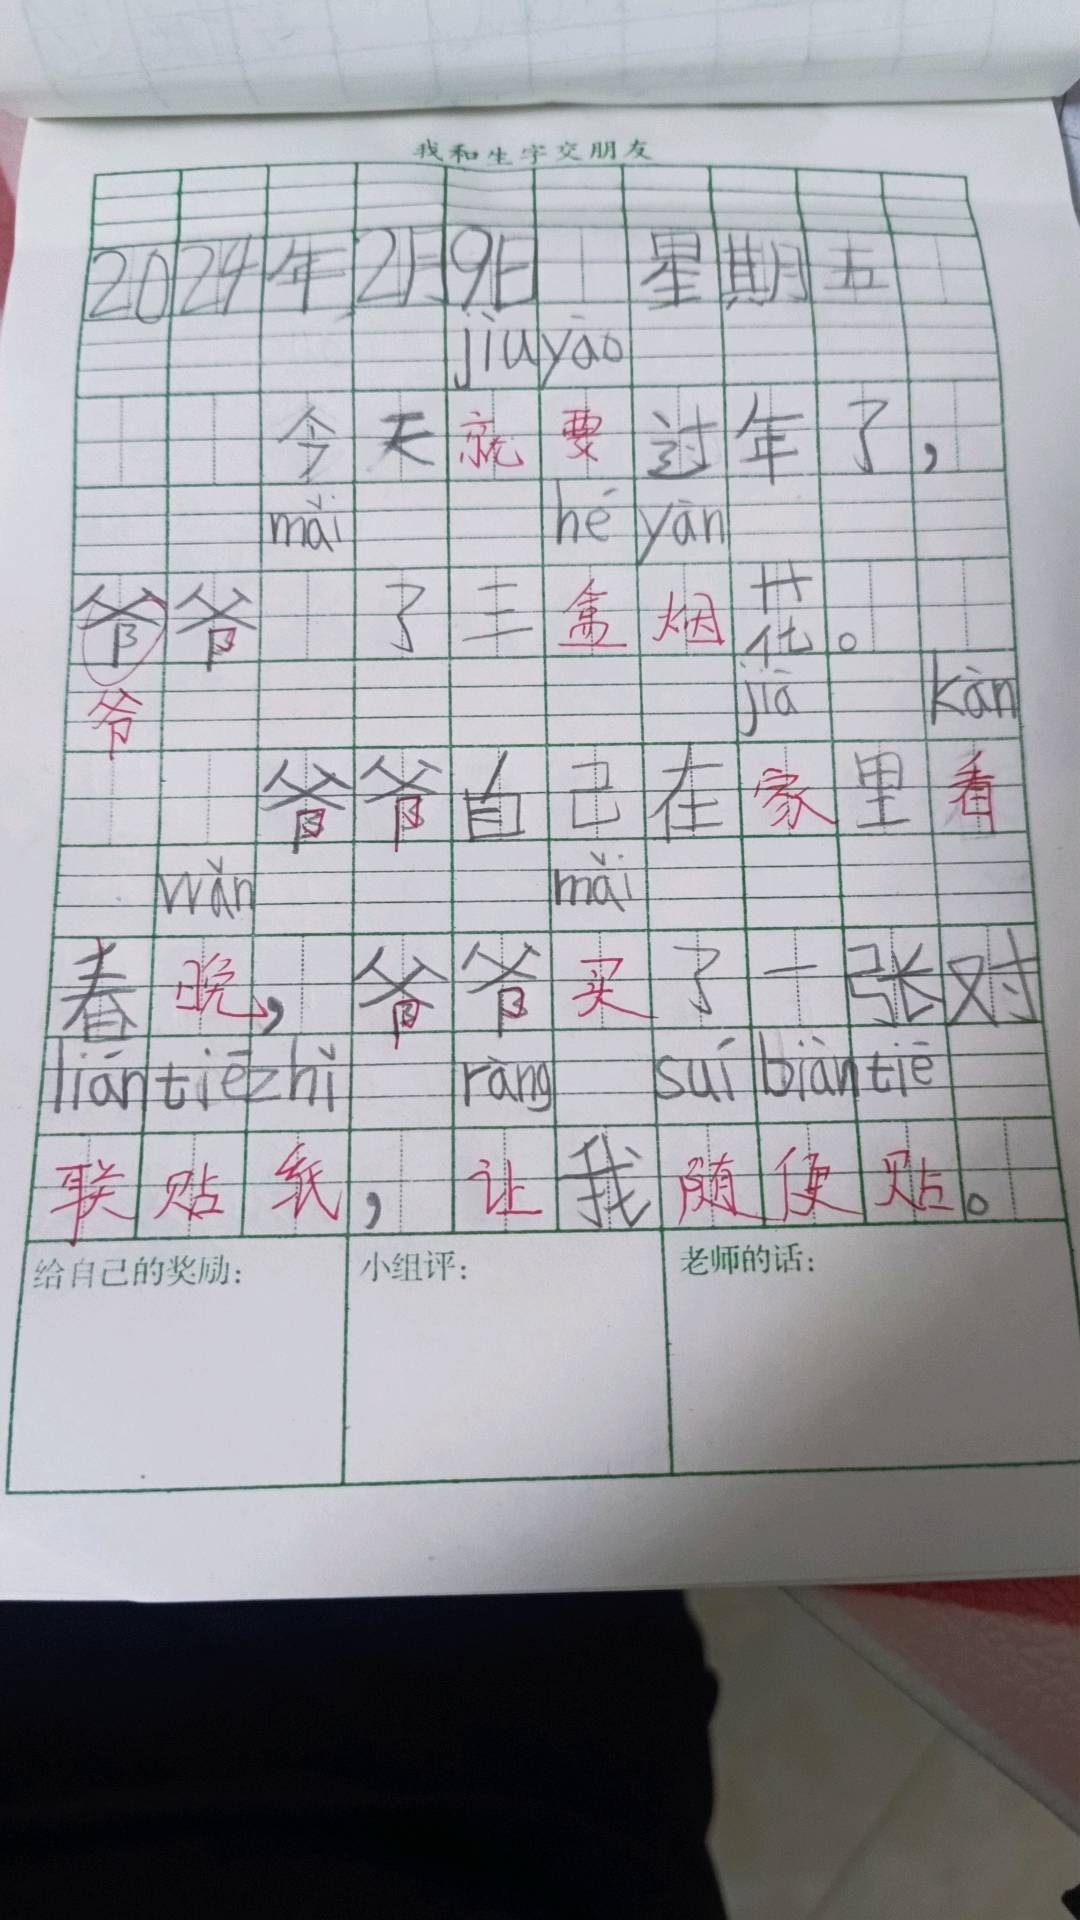 我和生字交朋友
2024年2月9日 星期五
jiù yào
今天就要过年了，
mǎi hé yān
爷爷 了三盒烟花。
jiā kàn
爷
爷爷自己在家里看
wǎn mǎi
春晚，爷爷买了一张对
lián tiē zhǐ ràng suí biàn tiē
联贴纸，让我随便贴。
给自己的奖励： 小组评： 老师的话：